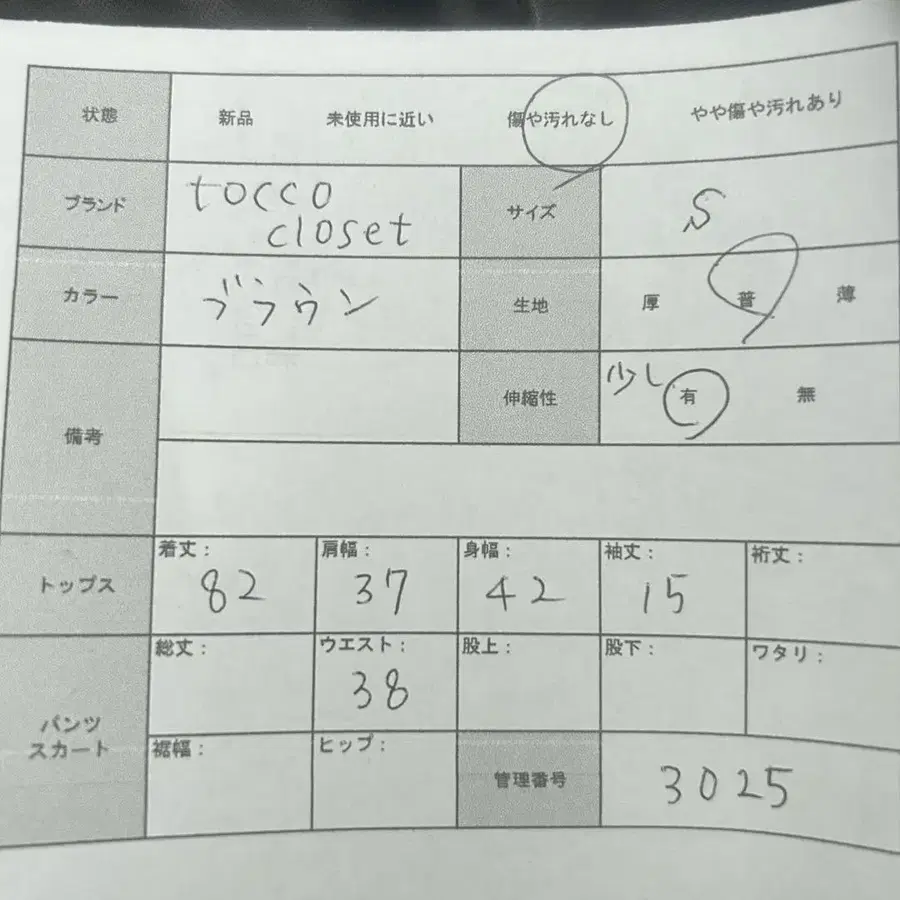 状態 新品 未使用に近い 傷や汚れなし やや傷や汚れあり
ブランド tocco closet サイズ S
カラー ブラウン 生地 厚 普 薄
備考 伸縮性 少し 有 無
トップス 着丈: 82 肩幅: 37 身幅: 42 袖丈: 15 裄丈:
パンツ スカート 総丈: ウエスト: 38 股上: 股下: ワタリ:
裾幅: ヒップ: 管理番号 3025